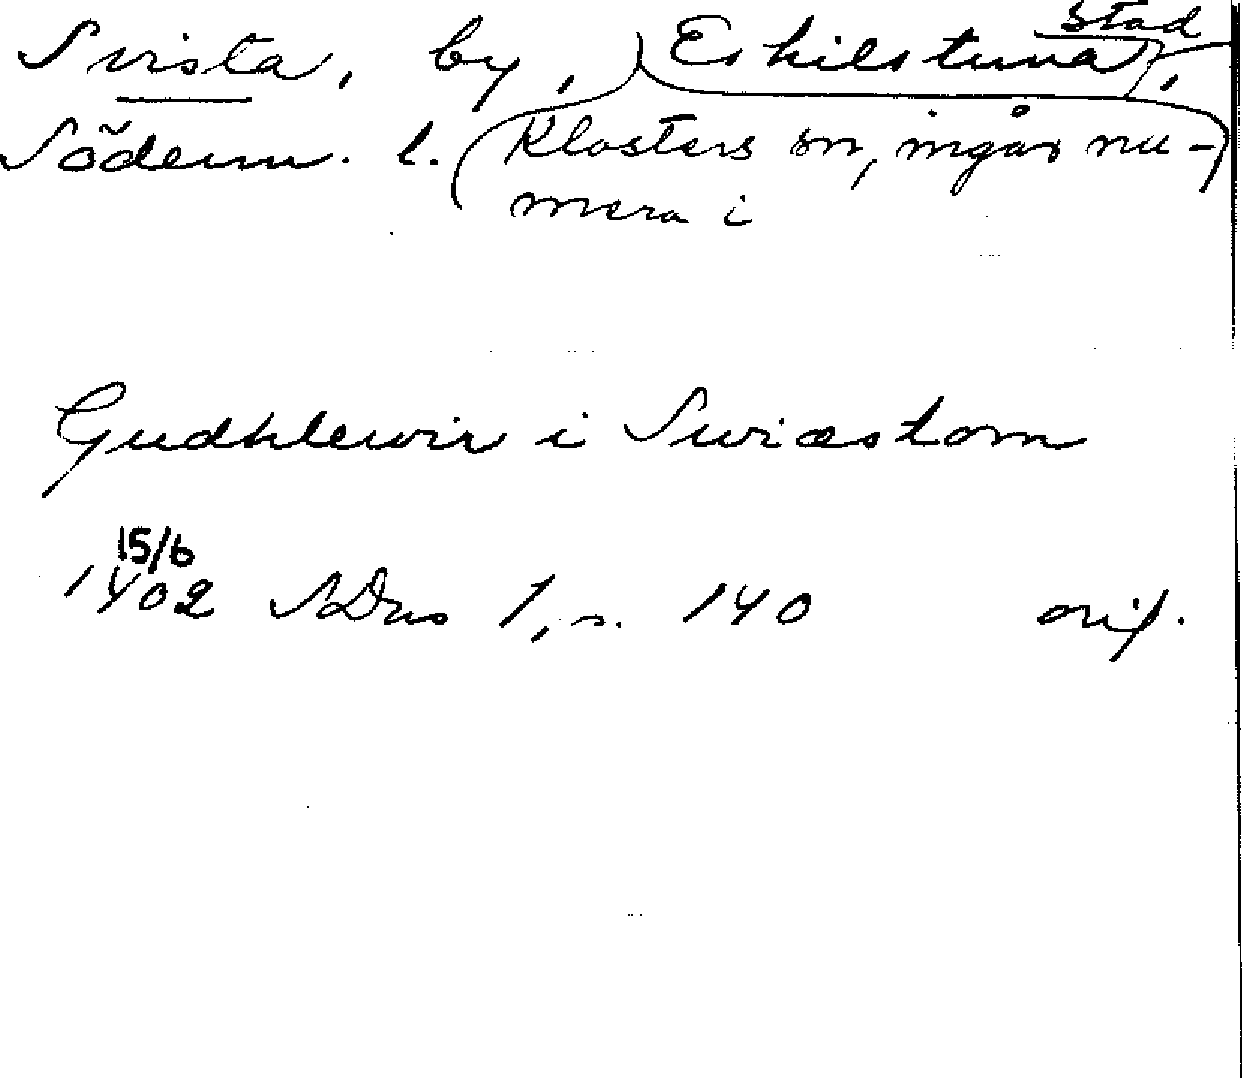 Svista, by, Eskilstuna stad,
Söderm. l. (Klosters sn, ingår nu-
mera i
Gudhlewir i Swiæstom
15/6
1402 SDns 1, s. 140 orig.